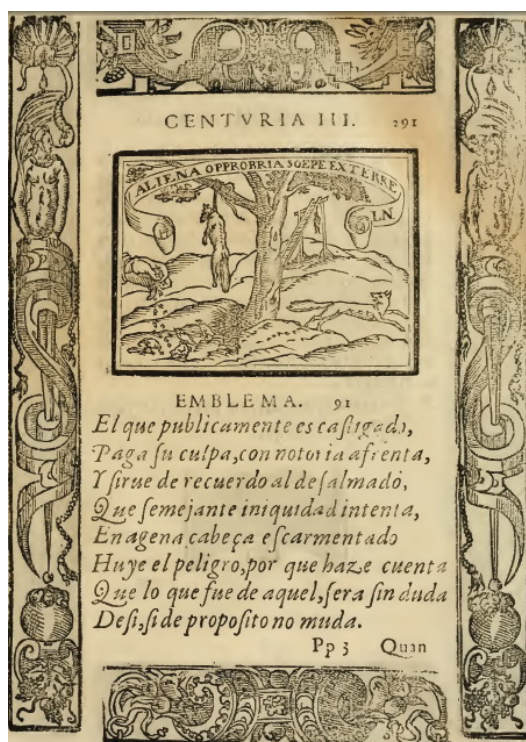 CENTVRIA III. 291
ALIENA OPPROBRIA SOEPE EXTERRE,
LN.
EMBLEMA. 91
El que publicamente es caſtigado,
Paga ſu culpa, con notoria afrenta,
Y ſirue de recuerdo al deſalmado,
Que ſemejante iniquidad intenta,
En agena cabeça eſcarmentado
Huye el peligro, por que haze cuenta
Que lo que fue de aquel, ſera ſin duda
De ſi, ſi de propoſito no muda.
Pp 3 Quan